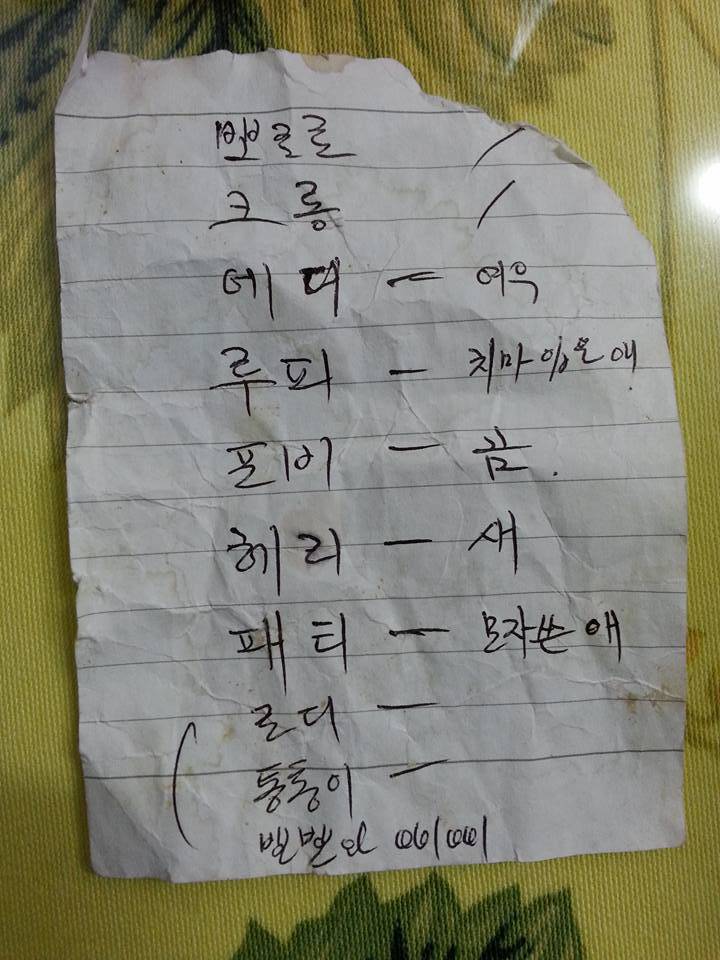 뽀로로 /
크롱 /
에디 - 여우
루피 - 치마입은애.
포비 - 곰.
헤리 - 새
패티 - 모자쓴애
로디 -
통통이 -
뽀뽀와 삐삐